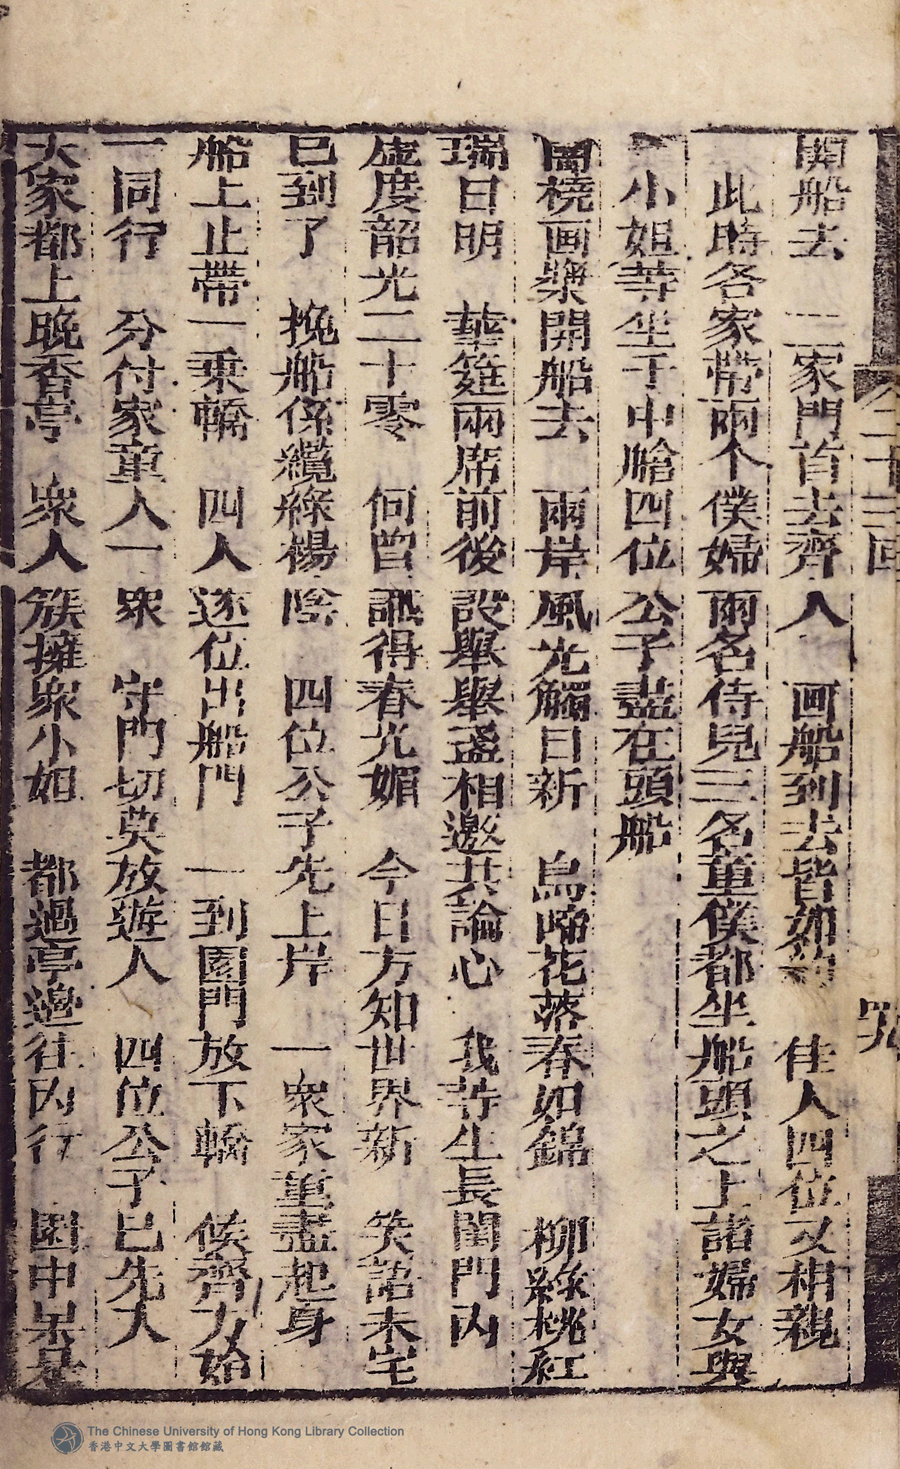 開船去　三家門首去齊人　画船到去皆如約　佳人四位又相親
此時各家帶兩个僕婦兩名侍兒三名童僕都坐船頭之上諸婦女與
小姐等坐于中艙四位公子盡在頭船
蘭橈画槳開船去　兩岸風光觸目新　鳥啼花落春如錦　柳綠桃紅
瑞日明　華筵兩席前後設　舉盞相邀共論心　我等生長閨門內
虛度韶光二十零　何曾識得春光媚　今日方知世界新　笑語未完
已到了　挽船係纜綠楊陰　四位公子先上岸　一衆家童盡起身
船上止帶一乗轎　四人逐位出船門　一到園門放下轎　候齊方始
一同行　分付家童人一衆　守門切莫放遊人　四位公子已先入
大家都上晚香亭　衆人簇擁衆小姐　都過亭邊往內行　園中果是
二十三囬
The Chinese University of Hong Kong Library Collection
香港中文大學圖書館館藏